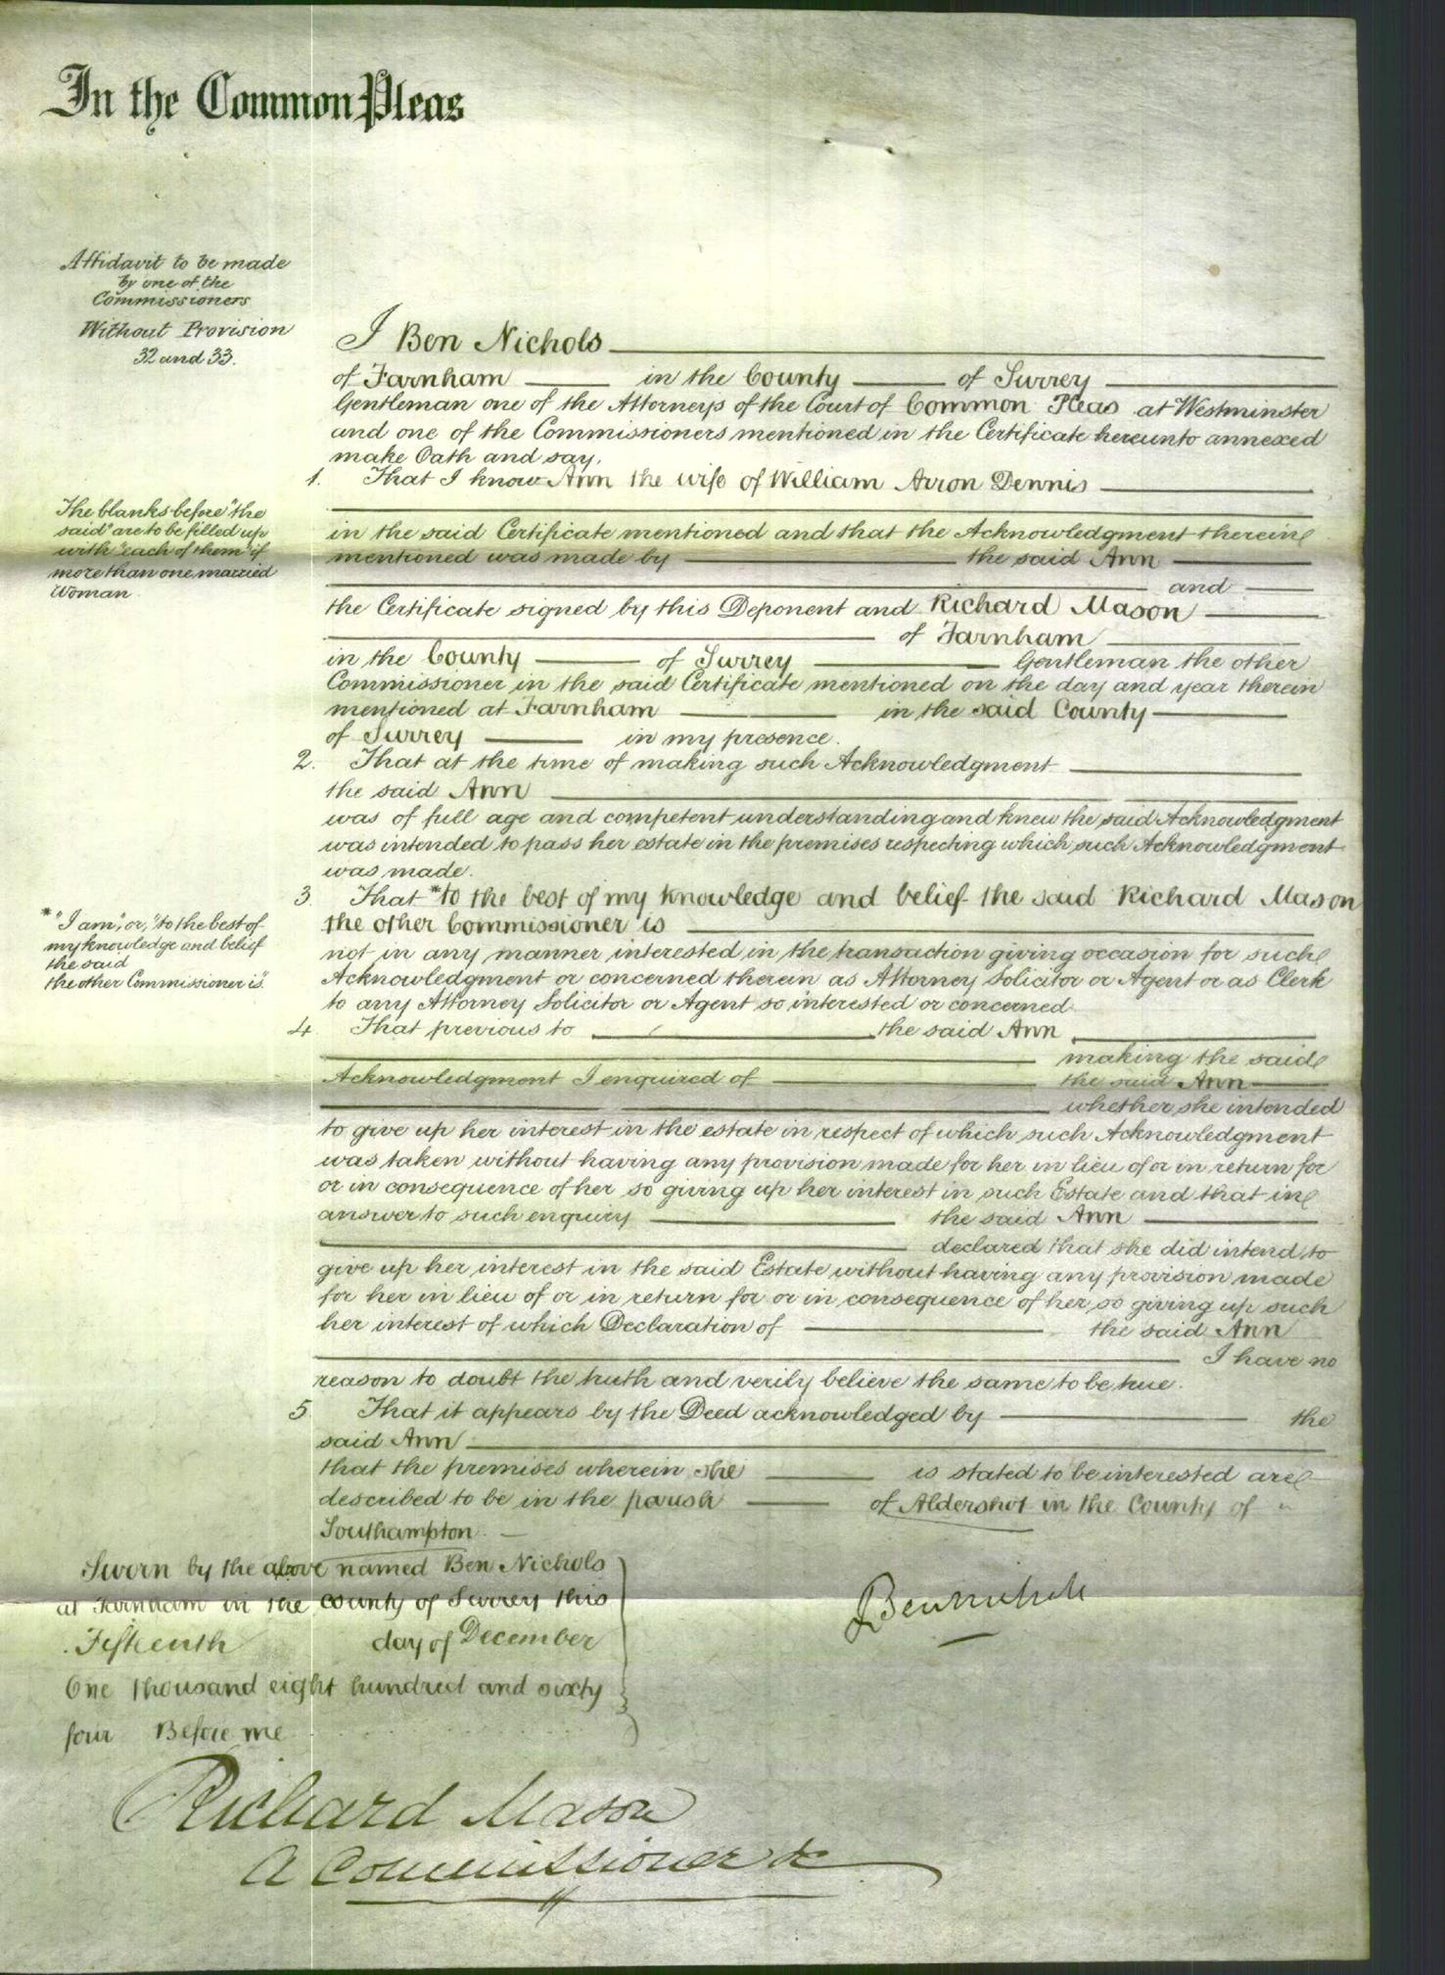 In the Common Pleas
Affidavit to be made
by one of the
Commissioners
Without Provision
32 and 33.
I Ben Nichols
of Farnham in the County of Surrey
Gentleman one of the Attorneys of the Court of Common Pleas at Westminster
and one of the Commissioners mentioned in the Certificate hereunto annexed
make Oath and say,
1. That I know Ann the wife of William Arron Dennis
The blanks before "the
said" are to be filled up
with "each of them" if
more than one married
Woman
in the said Certificate mentioned and that the Acknowledgment therein
mentioned was made by the said Ann
and
the Certificate signed by this Deponent and Richard Mason
of Farnham
in the County of Surrey Gentleman the other
Commissioner in the said Certificate mentioned on the day and year therein
mentioned at Farnham in the said County
of Surrey in my presence.
2. That at the time of making such Acknowledgment
the said Ann
was of full age and competent understanding and knew the said Acknowledgment
was intended to pass her estate in the premises respecting which such Acknowledgment
was made.
3. That *to the best of my knowledge and belief the said Richard Mason
the other Commissioner is
*"I am", or, "to the best of
my knowledge and belief
the said
the other Commissioner is".
not in any manner interested in the transaction giving occasion for such
Acknowledgment or concerned therein as Attorney Solicitor or Agent or as Clerk
to any Attorney Solicitor or Agent so interested or concerned
4. That previous to the said Ann
making the said
Acknowledgment I enquired of the said Ann
whether she intended
to give up her interest in the estate in respect of which such Acknowledgment
was taken without having any provision made for her in lieu of or in return for
or in consequence of her so giving up her interest in such Estate and that in
answer to such enquiry the said Ann
declared that she did intend to
give up her interest in the said Estate without having any provision made
for her in lieu of or in return for or in consequence of her so giving up such
her interest of which Declaration of the said Ann
I have no
reason to doubt the truth and verily believe the same to be true.
5. That it appears by the Deed acknowledged by the
said Ann
that the premises wherein she is stated to be interested are
described to be in the parish of Aldershot in the County of
Southampton
Sworn by the above named Ben Nichols
at Farnham in the County of Surrey this
Fifteenth day of December
One thousand eight hundred and sixty
four Before me
Ben Nichols
Richard Mason
A Commissioner &c